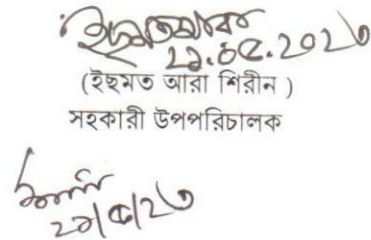 ২৯.০৫.২০২৩
(ইছমত আরা শিরীন )
সহকারী উপপরিচালক
২৯/৫/২৩